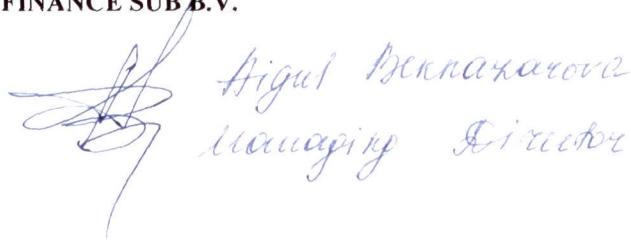 FINANCE SUB B.V.
Aigul Beknazarova
Managing Director